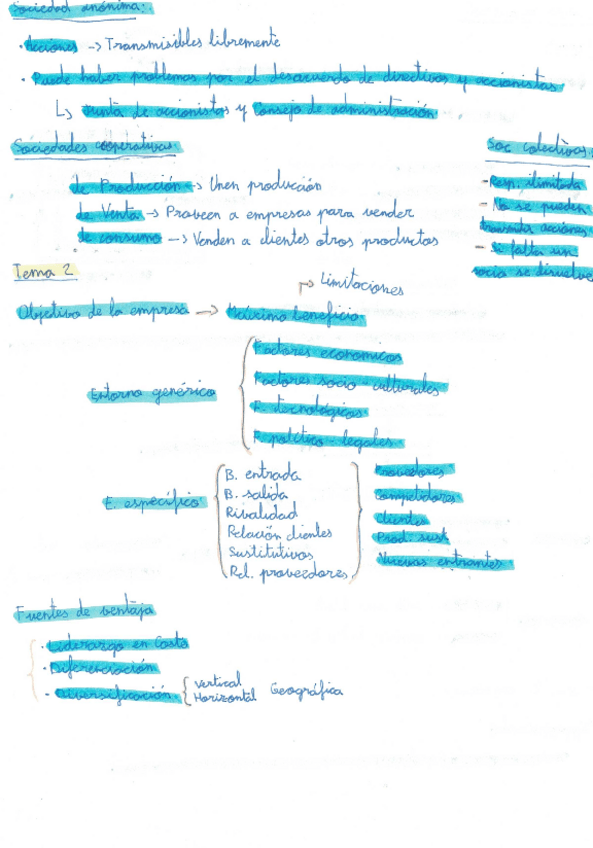 Sociedad anónima:
· Acciones -> Transmisibles libremente
· Puede haber problemas por el desacuerdo de directivos y accionistas
↳ Junta de accionistas y Consejo de administración
Sociedades cooperativas:
de Producción -> Unen producción
de Venta -> Proveen a empresas para vender
de consumo -> Venden a clientes otros productos
Soc colectivas:
- Resp. ilimitada
- No se pueden
transmitir acciones
- Si falta un
socio se disuelve
Tema 2
Limitaciones
Objetivo de la empresa -> Máximo beneficio
Entorno genérico
Factores económicos
Factores socio-culturales
F. tecnológicos
F. político-legales
E. específico
B. entrada
B. salida
Rivalidad
Relación clientes
Sustitutivos
Rel. proveedores
Proveedores
Competidores
Clientes
Prod. sust
Nuevos entrantes
Fuentes de ventaja
· Liderazgo en Coste
· Diferenciación
· Diversificación
Vertical
Horizontal Geográfica